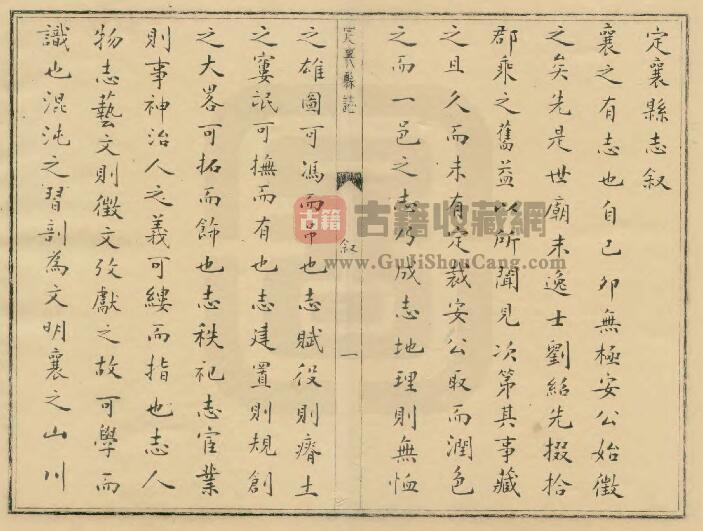 定襄縣志叙
襄之有志也自己卯無極安公始徵
之矣先是世廟末逸士劉紹先掇拾
郡乘之舊益以所聞見次第其事藏
之且久而未有定裁安公取而潤色
之而一邑之志乃成志地理則無恤
定襄縣誌
叙
一
之雄圖可馮而吊也志賦役則瘠土
之窶氓可撫而有也志建置則規創
之大畧可拓而飾也志秩祀志官業
則事神治人之義可縷而指也志人
物志藝文則徵文攷獻之故可學而
識也混沌之習剖為文明襄之山川
古籍
古籍收藏網
www.GuJiShouCang.com